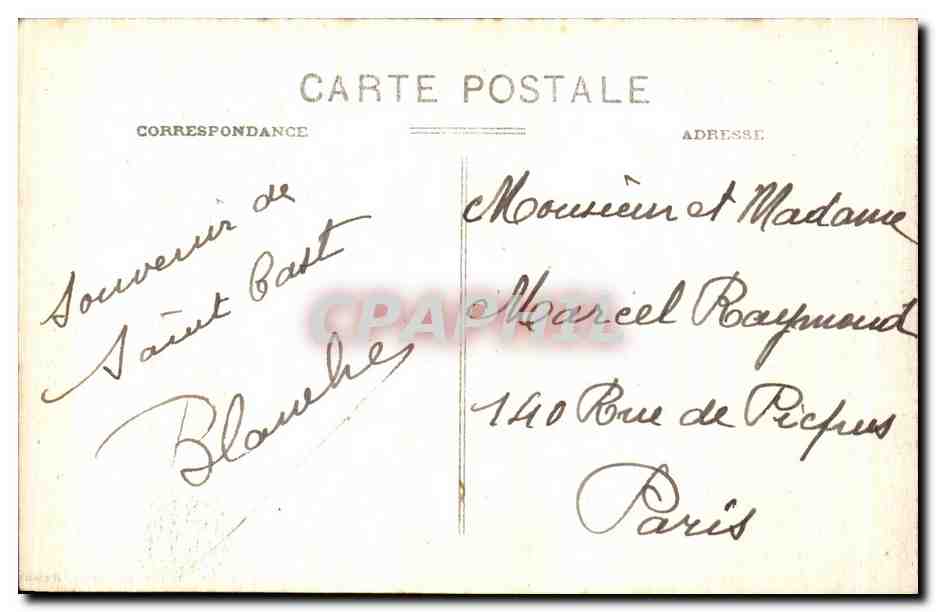 CARTE POSTALE
CORRESPONDANCE
ADRESSE
Souvenir de
Saint Cast
Blanche
Monsieur et Madame
Marcel Raymond
140 Rue de Picpus
Paris
CPAPHIL